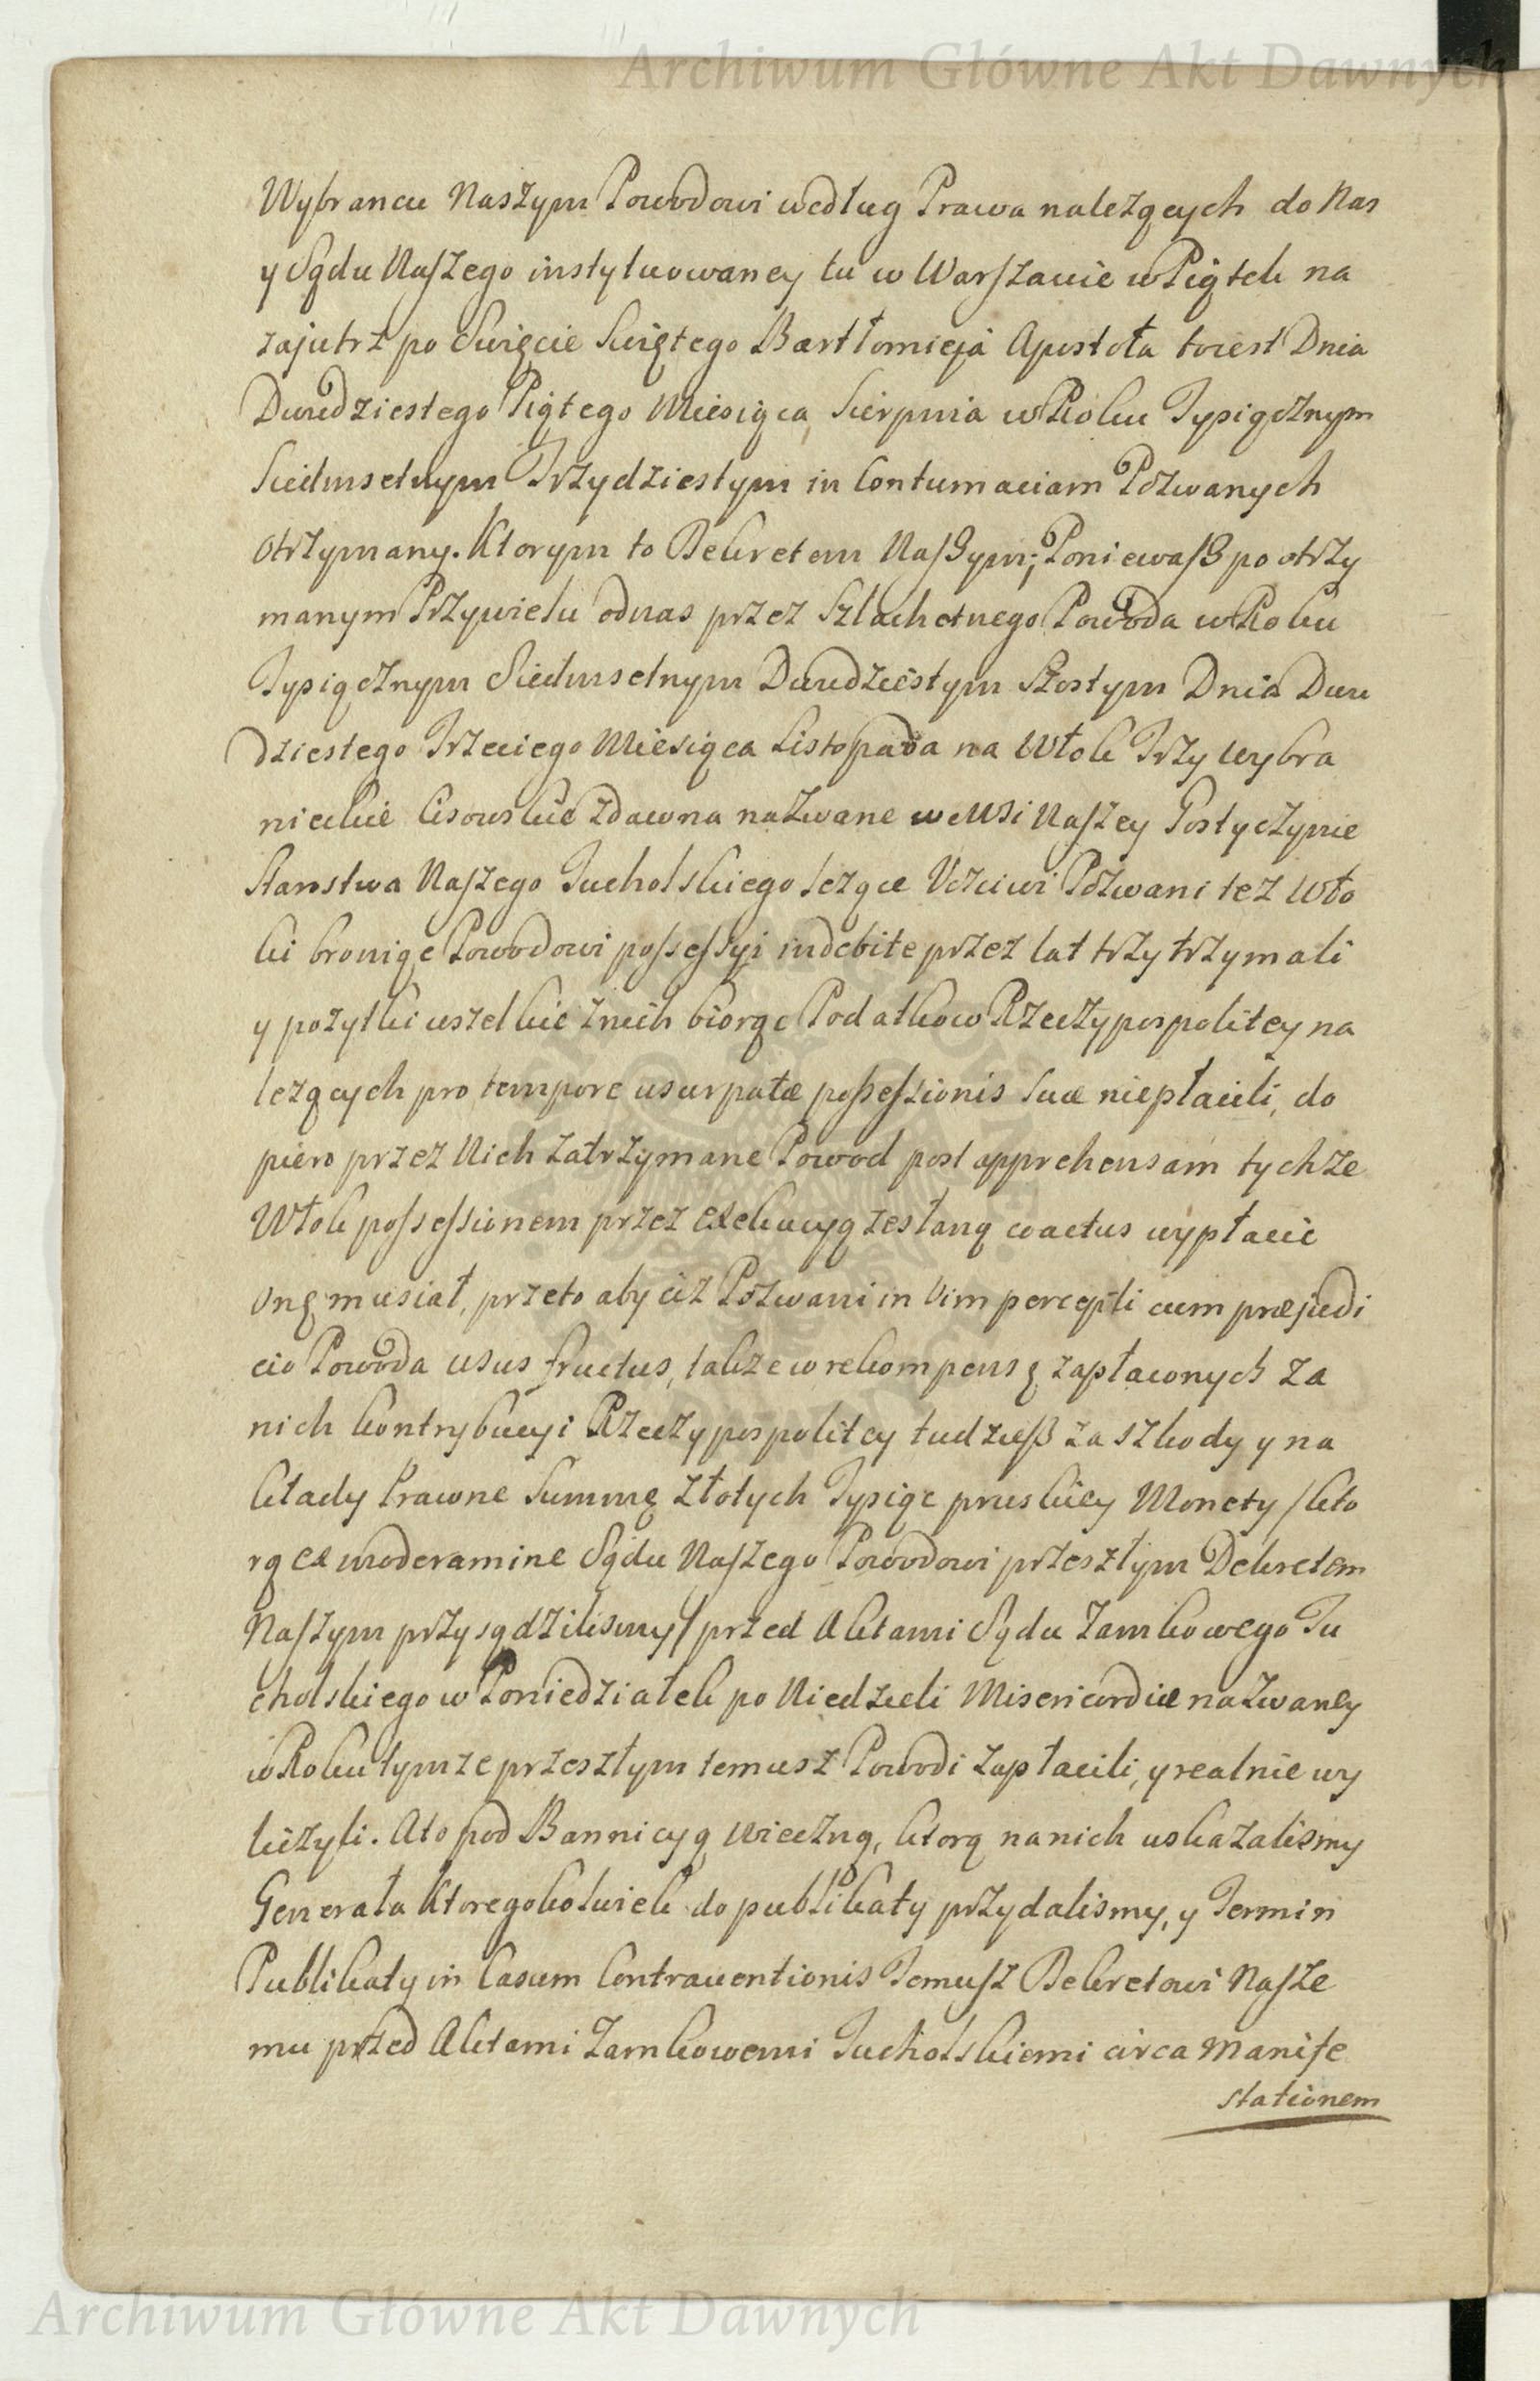 Archiwum Główne Akt Dawnych
Wybrancu Naszym Powodowi według Prawa nalezących do Nas
y Sądu Naszego instytuowaney tu w Warszawie w Piątek na
zajutrz po Swięcie Swiętego Bartłomieja Apostoła toiest Dnia
Dwudziestego Piątego Miesiąca Sierpnia w Roku Tysiącznym
Siedmsetnym Trzydziestym in Contumaciam Pozwanych
otrzymany. Ktorym to Dekretem Naszym; Poniewasz po otrzy
manym Przywielu odnas przez Szlachetnego Powoda w Roku
Tysiącznym Siedmsetnym Dwudziestym Szostym Dnia Dwu
dziestego Trzeciego Miesiąca Listopada na Włok Trzy wybra
nieckie Cisowskie zdawna nazwane we Wsi Naszey Gostyczynie
Starostwa Naszego Tucholskiego lezące Uczciwi Pozwani tez Wło
ki broniąc Powodowi possessyi indebite przez lat trzy trzymali
y pozytki wszelkie znich biorąc Podatkow Rzeczypospolitey na
lezących pro tempore usurpatæ possessionis suæ niepłacili, do
piero przez Nich zatrzymane Powod post apprehensam tychze
Włok possessionem przez exekucyą zesłaną coactus wypłacic
onę musiał, przeto aby ciz Pozwani in Vim percepti cum præjudi
cio Powoda usus fructus, takze w rekompensę zapłaconych za
nich kontrybucyi Rzeczypospolitey tudziesz za szkody y na
kłady Prawne Summę złotych Tysiąc pruskiey Monety /kto
rą ex moderamine Sądu Naszego Powodowi przeszłym Dekretem
Naszym przysądzilismy/ przed Aktami Sądu Zamkowego Tu
cholskiego w Poniedziałek po Niedzieli Misericordiæ nazwaney
w Roku tymze przeszłym temusz Powodi zapłacili, y realnie wy
liczyli. Ato pod Bannicyą wieczną, ktorą nanich wskazalismy
Generała Ktoregokolwiek do publikaty przydalismy, y Termin
Publikaty in Casum Contraventionis Temusz Dekretowi Nasze
mu przed Aktami Zamkowemi Tucholskiemi circa Manife
stationem
Archiwum Główne Akt Dawnych